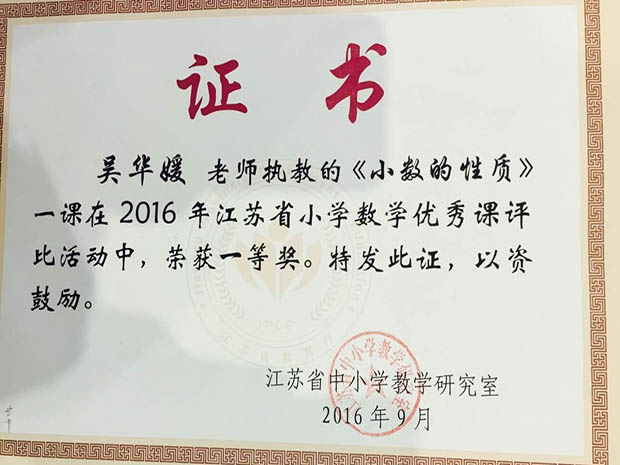 证 书
吴华媛 老师执教的《小数的性质》
一课在 2016 年江苏省小学数学优秀课评
比活动中，荣获一等奖。特发此证，以资
鼓励。
江苏省中小学教学研究室
2016 年 9 月